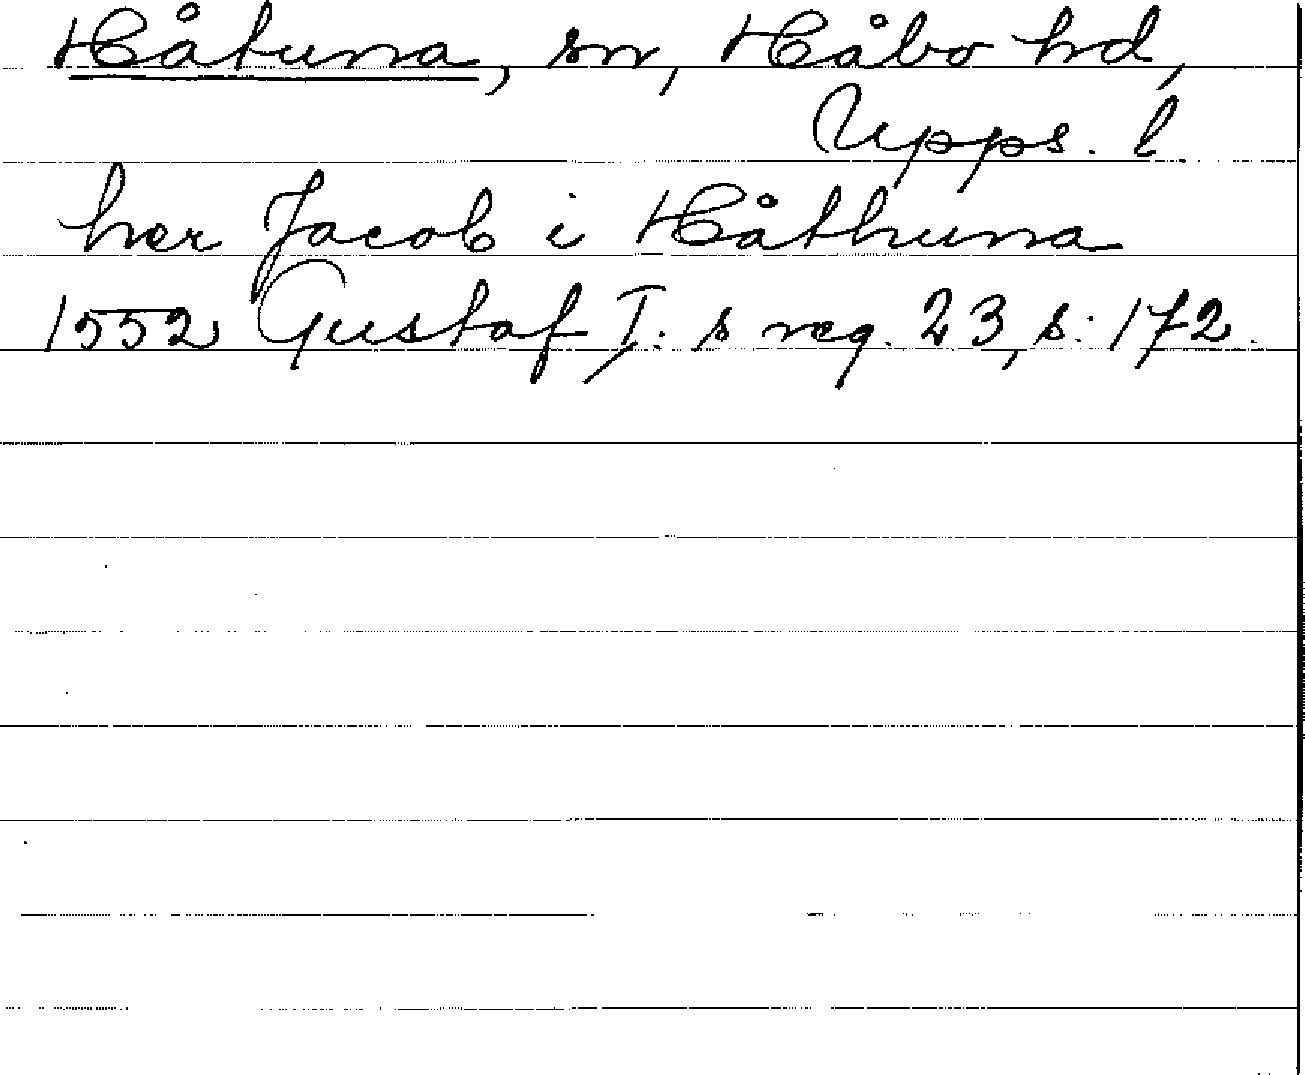 Håtuna, sn, Håbo hd,
Upps. l.
her Jacob i Håthuna
1552 Gustaf I: s reg. 23, s. 172.